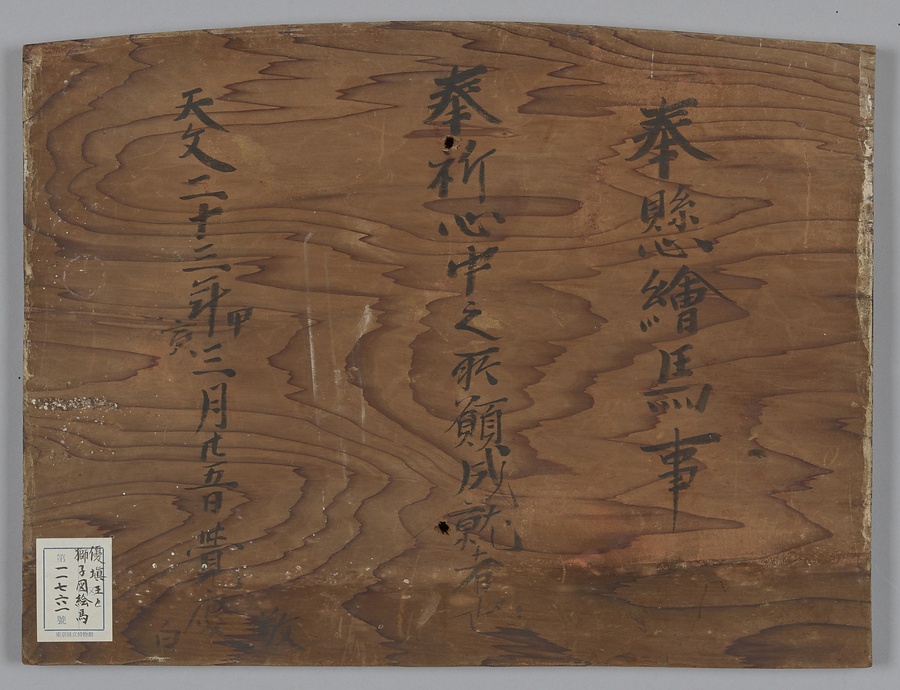 奉懸繪馬事
奉祈心中之所願成就者也
天文二十三年甲寅三月廿五日覺
敬
白
優塡王と
獅子図絵馬
第一一七六一號
東京国立博物館